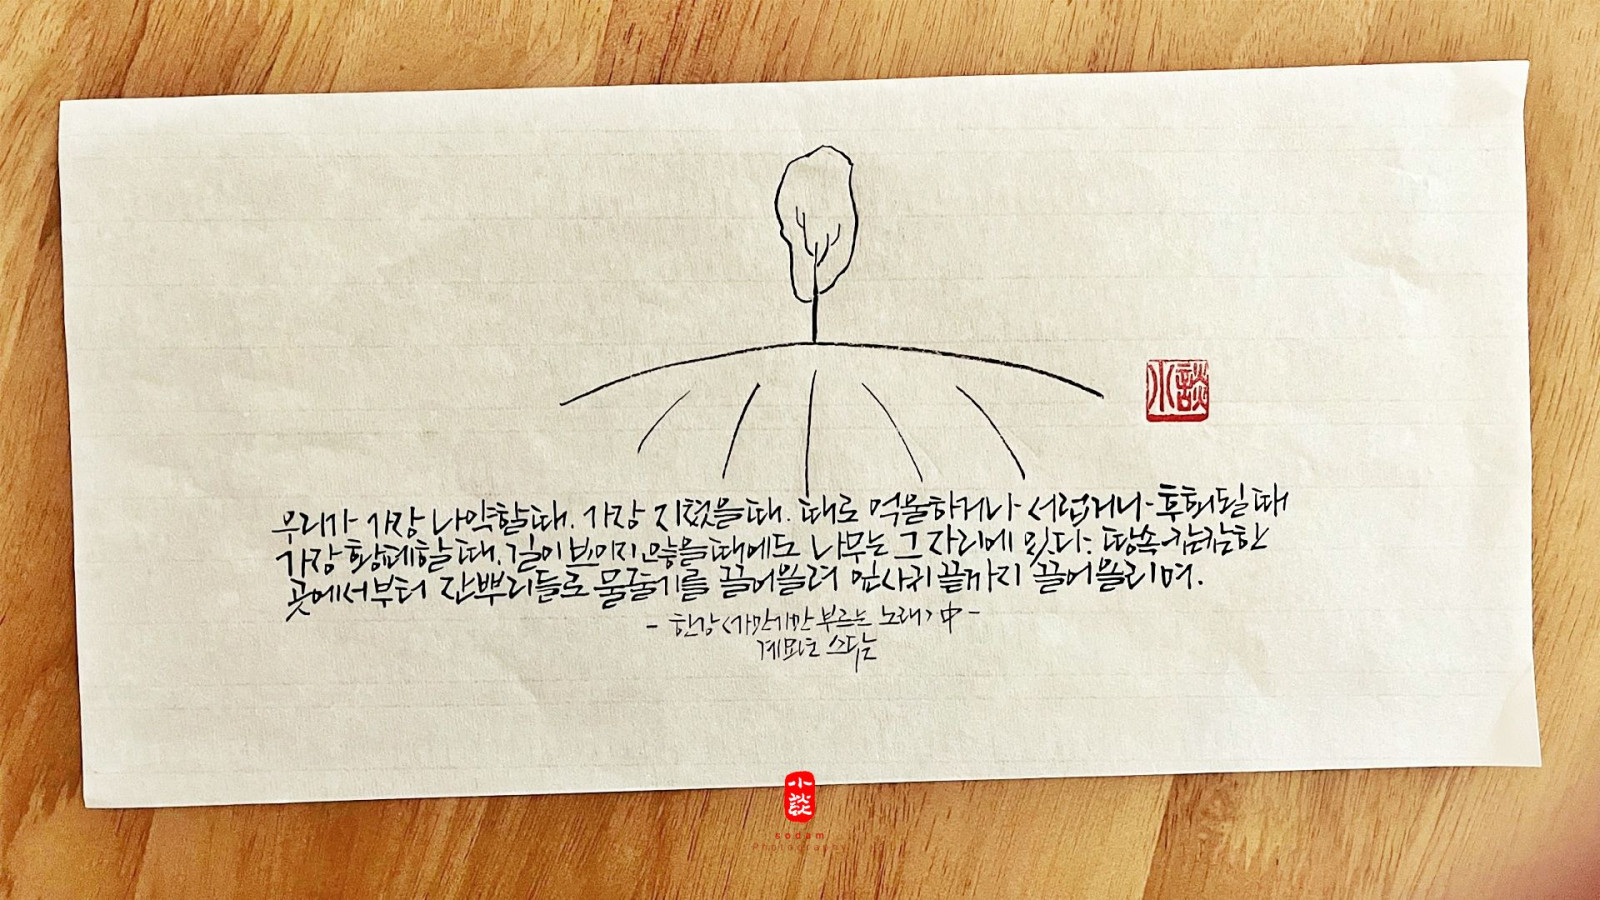 小談
우리가 가장 나약할때. 가장 지쳤을때. 때로 억울하거나 서럽거나 후회될때
가장 황폐할때. 길이 보이지 않을때에도 나무는 그자리에 있다. 땅속 캄캄한
곳에서부터 잔뿌리들로 물줄기를 끌어올려 잎사귀 끝까지 끌어올리며.
- 한강 <가만가만 부르는 노래> 中 -
계묘년 스무
小談
sodam
Photography